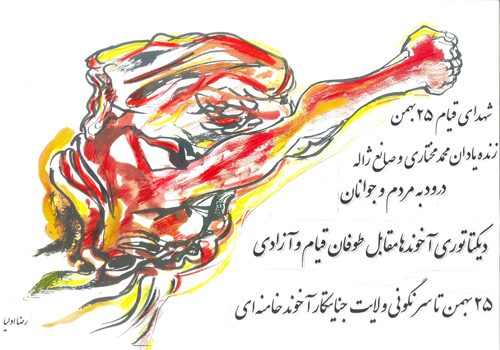 شهدای قیام ۲۵ بهمن
زنده یادان محمد مختاری و صانع ژاله
درود به مردم و جوانان
دیکتاتوری آخوندها مقابل طوفان قیام و آزادی
۲۵ بهمن تا سرنگونی ولایت جنایتکار آخوند خامنه ای
رضا اولیا